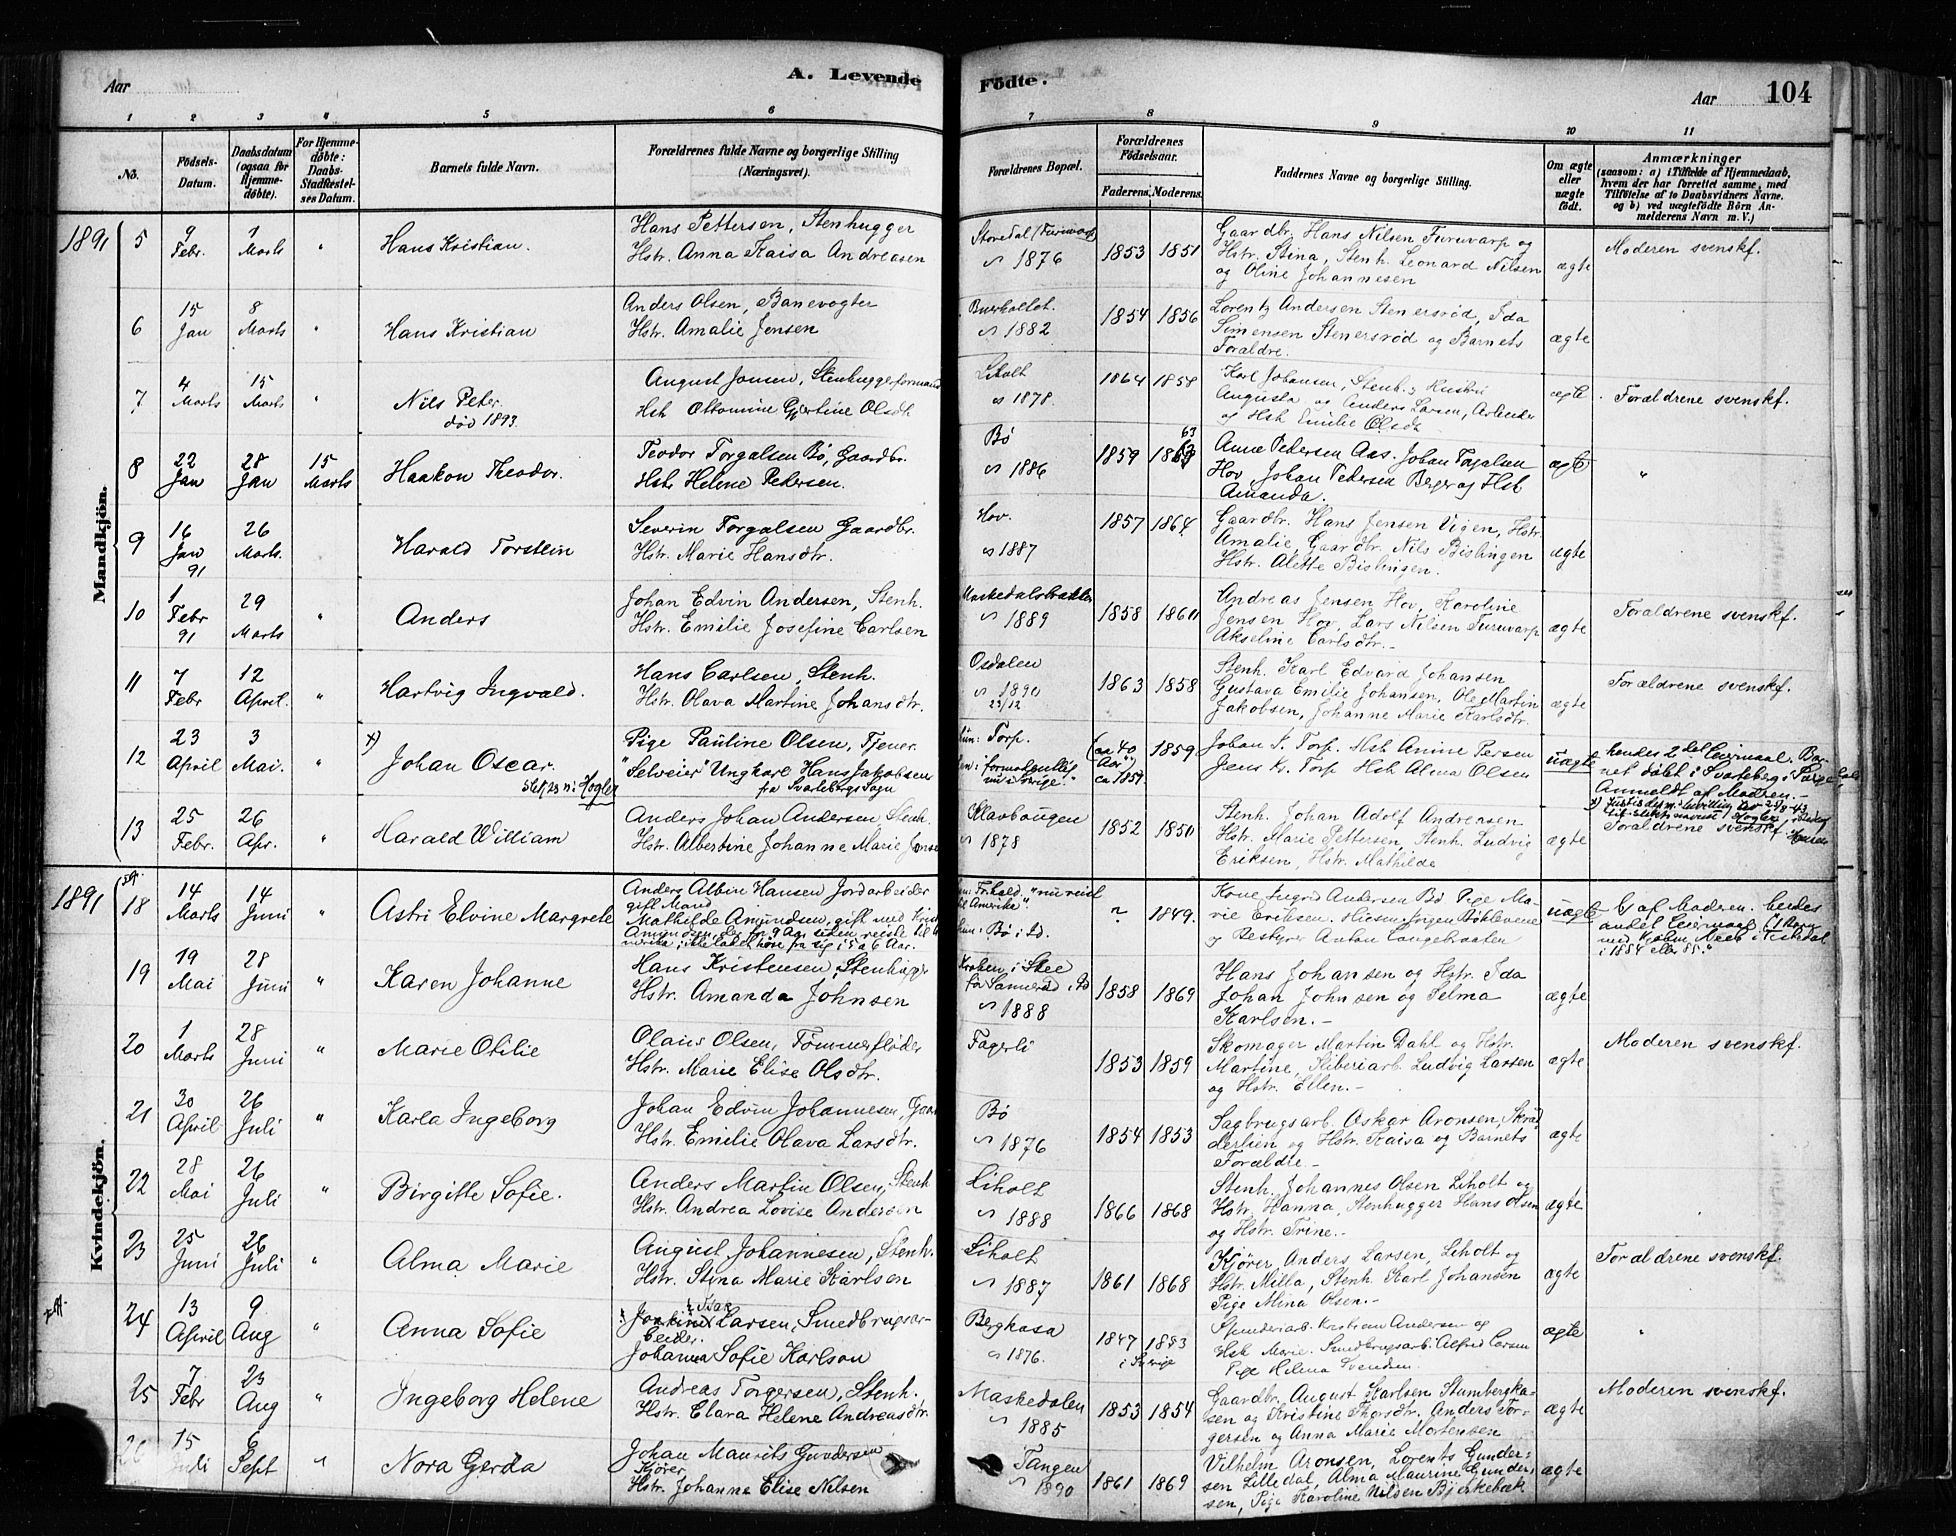 A. Levende Födte.
Aar
Aar 104
1 2 3 4 5 6 7 8 9 10 11
No. Födsels-Datum. Daabsdatum (ogsaa for Hjemmedöbte). For Hjemmedöbte: Daabs-Stadfæstelses Datum. Barnets fulde Navn. Forældrenes fulde Navne og borgerlige Stilling (Næringsvei). Forældrenes Bopæl. Forældrenes Födselsaar. Faderens. Moderens. Faddernes Navne og borgerlige Stilling. Om ægte eller uægte födt. Anmærkninger (saasom: a) i Tilfælde af Hjemmedaab, hvem der har forrettet samme, med Tilföielse af to Daabsvidners Navne, og b) ved uægtefödte Börn Anmelderens Navn m. V.)
Mandkjön.
1891 5 9 Febr. 1 Marts " Hans Kristian. Hans Pettersen, Stenhugger
Hstr. Anna Kaisa Andreasen
Storedal (Furuvarp) 1876 1853 1851 Gaardbr. Hans Nilsen Furuvarp og
Hstr. Stina, Stenh. Leonard Nilsen
og Oline Johannesen ægte Moderen svenskf.
6 15 Jan 8 Marts " Hans Kristian Anders Olsen, Banevogter
Hstr. Amalie Jensen
1882 1854 1856 Lorentz Andersen Stenersrød, Ida
Simensen Stenersrød og Barnets
Forældre. ægte
7 4 Marts 15 Marts " Nils Peter. død 1893. August Jonsen, Stenhuggerformand
Hst Ottomine Gjertine Olsdt
Liholt 1878. 1864 1858 Karl Johansen, Stenh. og Hustru
Augusta og Anders Larsen, Arbeider
og Hst Emilie Olsdt ægte Forældrene svenskf.
8 22 Jan 28 Jan 15 Marts Haakon Theodor. Teodor Torgalsen Bø, Gaardbr.
Hstr Helene Pedersen.
Bø 1886 1859 1863 Anne Pedersen Aas. Johan Torgalsen
Hov, Johan Pedersen Berger og Hst
Amanda. ægte "
9 16 Jan 91 26 Marts. Harald Torstein Severin Torgalsen Gaardbr.
Hstr. Marie Hansdtr.
Hov. 1887 1857 1864. Gaardbr. Hans Jensen Vigen, Hstr.
Amalie, Gaardbr. Nils Bislingen
Hstr. Alette Bislingen. ægte
10 1 Febr 91 29 Marts " Anders Johan Edvin Andersen, Stenh.
Hstr. Emilie Josefine Carlsen
Maskedalsbakken 1889 1858 1860 Andreas Jensen Hov, Karoline
Jensen Hov, Lars Nilsen Furuvarp
Akseline Carlsdtr.- ægte Forældrene svenskf.
11 7 Febr 12 April. " Hartvig Ingvald. Hans Carlsen, Stenh.
Hstr. Olava Martine Johansdtr.
Osdalen 1890 23/12 1863 1858 Stenh. Karl Edvard Johansen
Gustava Emilie Johansen, Ole Martin
Jakobsen, Johanne Marie Karlsdtr. ægte Forældrene svenskf.
12 23 April 3 Mai. " x) Johan Oscar. Hogler Pige Pauline Olsen, Tjener
"Selveier" Ungkarl Hans Jakobsen
fra Svarteborgs Sogn
hun: Torp. han: formentlig nu i Sverige." (ca 40 Aar) ca 1851 1859 Johan A. Torp. Hst Anine Persen
Jens Kr. Torp Hst Alma Olsen uægte hendes 2det Leiermaal. Barnet døbt i
Anmeldt af Modren.-
13 25 Febr. 26 Apr. " Harald William Anders Johan Andersen, Stenh.
Hstr. Albertine Johanne Marie
1878 1852 1850 Stenh. Johan Adolf Andreasen
Hstr. Marie Pettersen, Stenh. Ludvig
Eriksen, Hstr. Mathilde ægte Forældrene svenskf.
Kvindekjön.
1891 18 14 Marts 14 Juni " Astri Elvine Margrete Anders Albin Hansen Jordarbeider
gift Mand
Mathilde Amundsen, gift med
Amundsen, der for 9 Aar siden reiste til
Amerika, ikke ladet høre fra sig i 5 a 6 Aar.
han: Frhald. "nu reist til Amerika". hun: Bø i Id. " 1849. Kone Ingrid Andersen Bø Pige Marie
Eriksen.
og Bestyrer Anton Langebraaten uægte af Moderen. hendes
andet Leiermaal
i 1884 eller 85."
19 19 Mai 28 Juni " Karen Johanne Hans Kristensen, Stenhugger
Hstr. Amanda Johnsen
Kroken, i Skee fra Sannerød i Id 1888 1858 1869 Hans Johansen og Hstr. Ida
Johan Johnsen og Selma
Karlsen.- ægte
20 1 Marts 28 Juni " Marie Otilie Olaus Olsen, Tømmerfløder
Hstr. Marie Elise Olsdtr.
Fagerli 1853 1859 Skomager Martin Dahl og Hstr.
Martine, Sliberiarb. Ludvig Larsen
og Hstr. Ellen.- ægte Moderen svenskf.
21 30 April 26 Juli " Karla Ingeborg Johan Edvin Johannesen,
Hstr. Emilie Olava Larsdtr.
Bø 1876 1854 1853 Sagbrugsarb. Oskar Aronsen, Skræd
derlien og Hstr. Kaisa og Barnets
Forældre.- ægte
22 28 Mai 26 Juli " Birgitte Sofie. Anders Martin Olsen, Stenh
Hstr. Andrea Lovise Andersen
Liholt 1888 1866 1868 Stenh. Johannes Olsen Liholt og
Hstr. Hanna, Stenhugger Hans Olsen
og Hstr. Trine.- ægte
23 25 Juni 26 Juli " Alma Marie August Johannesen, Stenh.
Hstr. Stina Marie Karlsen
Liholt 1887 1861 1868 Kjører, Anders Larsen, Liholt og
Hstr. Milla, Stenh. Karl Johansen
Pige Mina Olsen.- ægte Forældrene svenskf.
24 13 April 9 Aug " Anna Sofie Larsen, Smedbrugsar-
beider.
Johanna Sofie Karlson
Bergkasa 1876. 1847 1853 i Sverige Spinderiarb. Kristian Andersen og
Hst Marie. Smedbrugsarb. Alfred Larsen
Pige Helena Svendsen ægte "
25 7 Febr 23 Aug " Ingeborg Helene Andreas Torgersen, Stenh.
Hstr. Clara Helene Andreasdtr.
Maskedalen 1885 1853 1854 Gaardbr. August Karlsen Stumbergka-
sen og Kristine Thorsdtr. Anders Tor-
gersen og Anna Marie Mortensen ægte Moderen svenskf.
26 15 Juli 6 Sept " Nora Gerda Johan Maurits Gundersen
Kjører
Hstr. Johanne Elise Nilsen
Tangen 1890 1861 1869 Vilhelm Aronsen, Lorents Gunder-
sen Lilledal, Alma Maurine Gunder-
sen, Pige Karoline Nilsen Bjerkebæk ægte